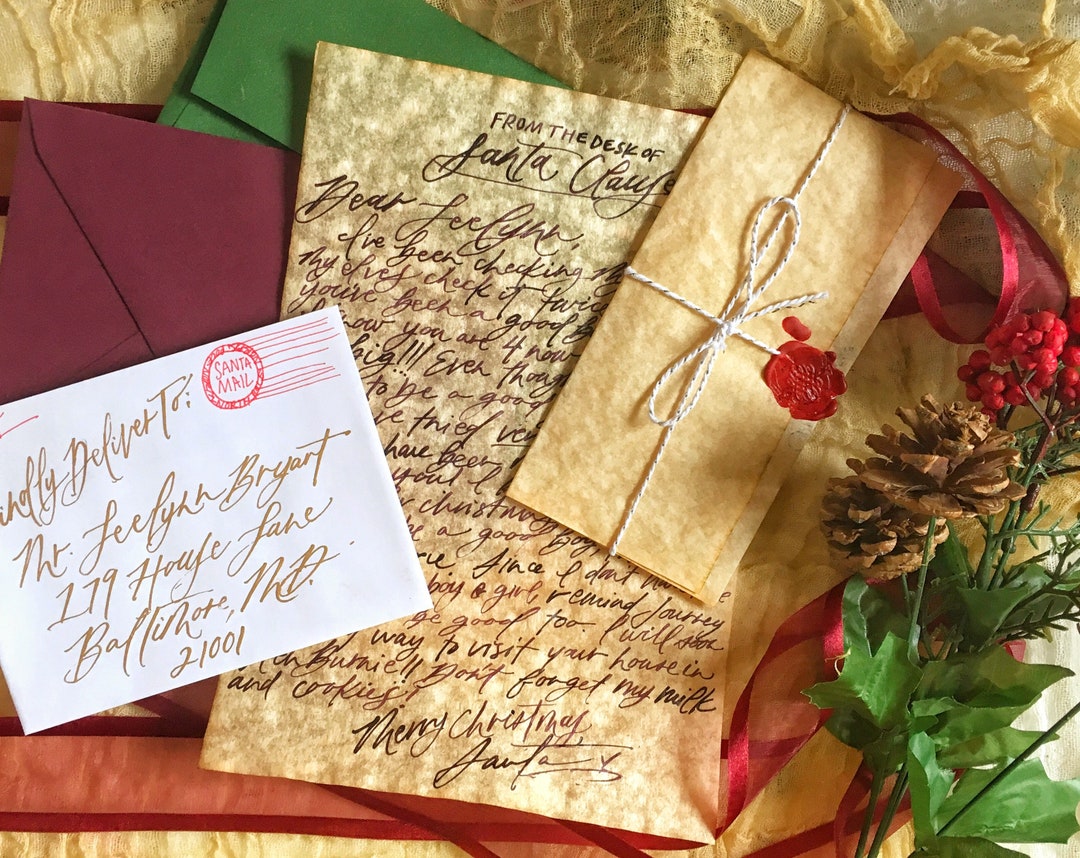 FROM THE DESK OF
Santa Clause
Dear Jeelynn,
I've been checking my
My elves check it twice
you've been a good
know you are 4 now
big!!! Even though
to be a good
tried
have been
you! I
christmas
be a good boy
Since I don't have
boy & girl, remind Journey
be good too. I will soon
way to visit your house in
Burnie!! Don't forget my milk
and cookies!
Merry Christmas,
Santa
SANTA
MAIL
NORTH
Kindly Deliver To:
Mr. Jeelynn Bryant
179 House Lane
Baltimore, MD.
21001